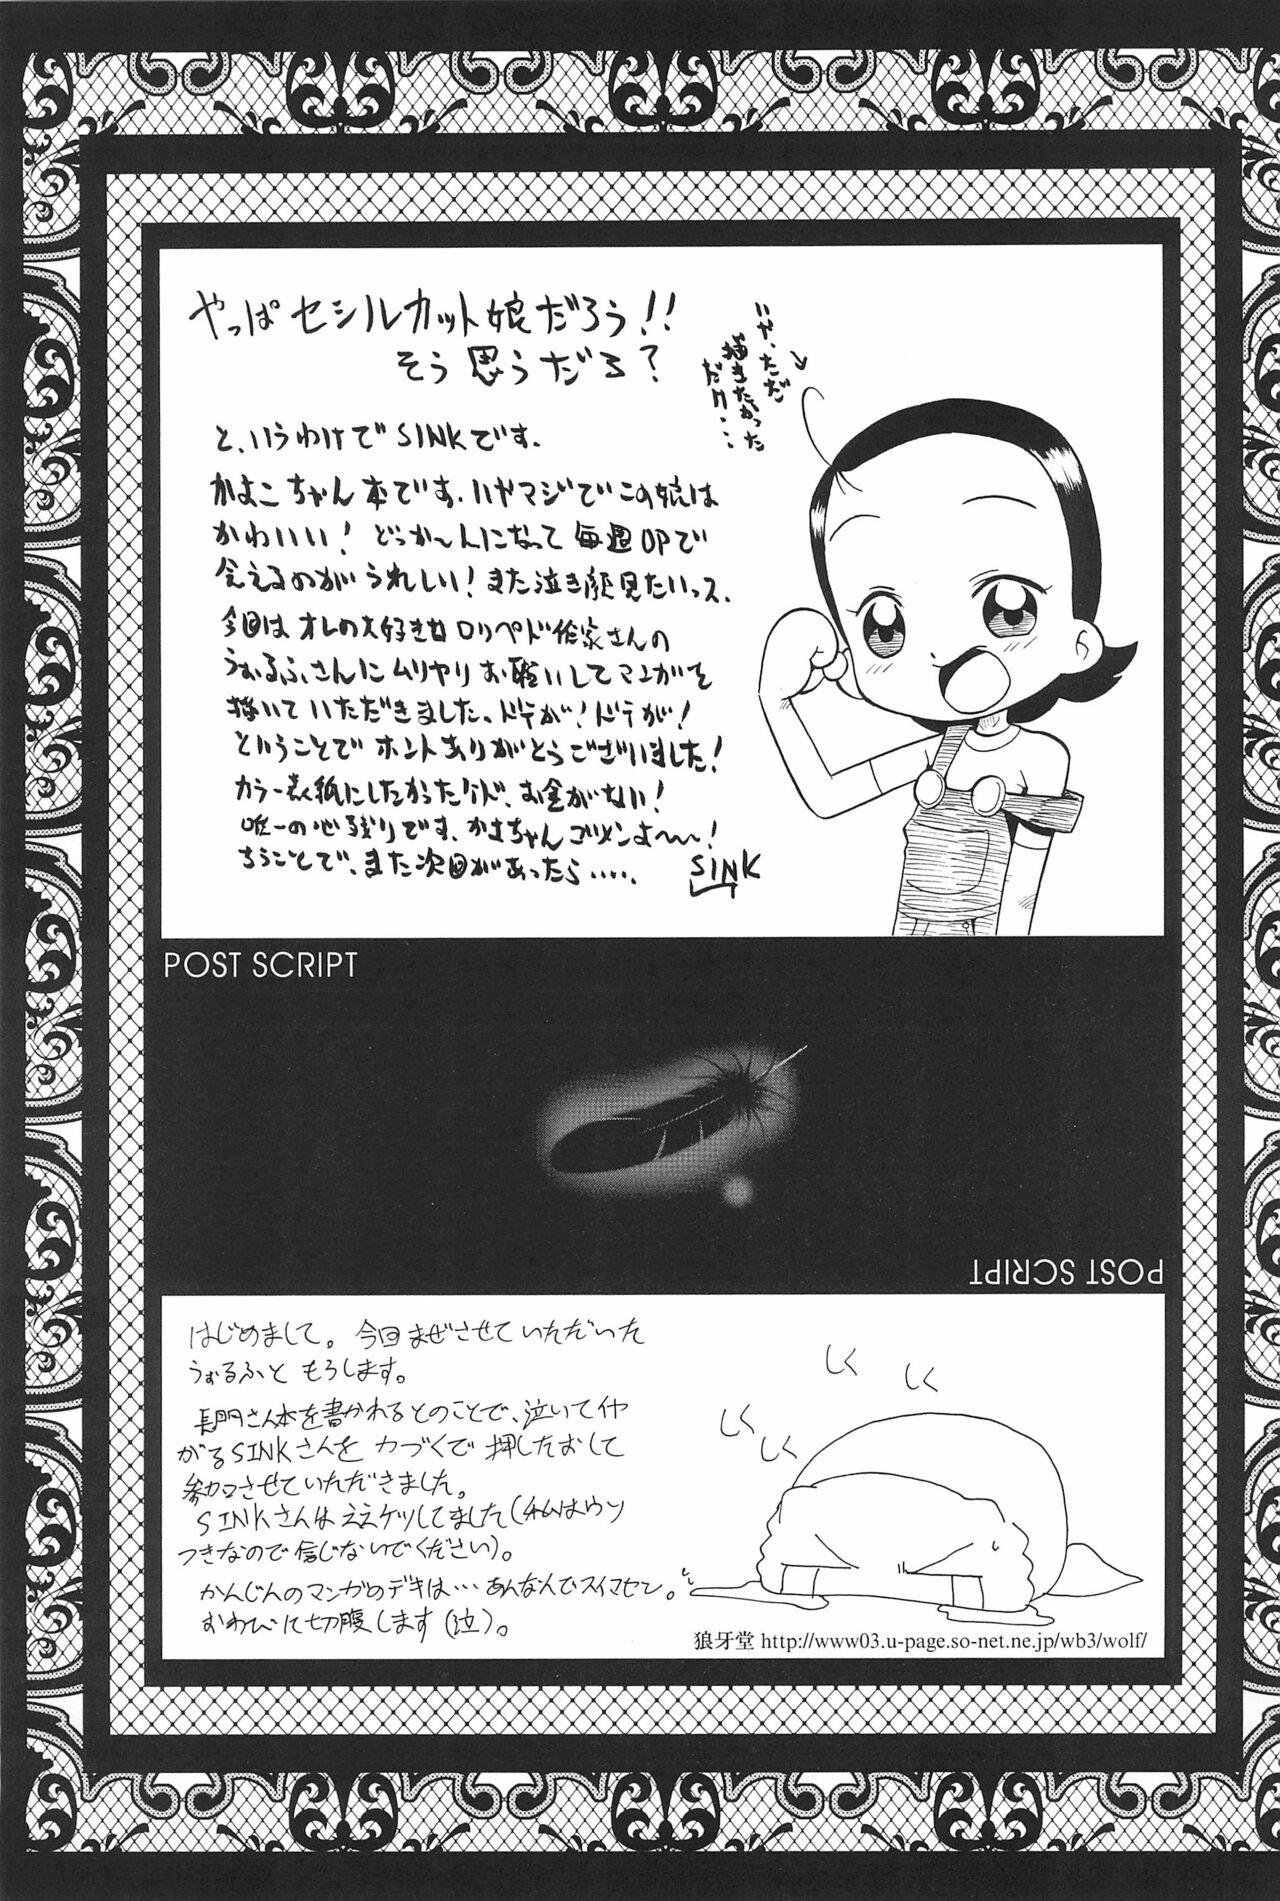 やっぱセシルカット娘だろう!!
そう思うだろ?
いや、ただ
描きたかった
だけ…
と、いうわけでSINKです。
かよこちゃん本です。いやマジでこの娘は
かわいい!どっか〜んになって毎週OPで
会えるのがうれしい!また泣き顔見たいっス。
今回はオレの大好きなロリペド作家さんの
うぉるふさんにムリヤリお願いしてマンガを
描いていただきました。ドテが!ドテが!
ということでホントありがとうございました!
カラー表紙にしたかったけど、お金がない!
唯一の心残りです。かよちゃんゴメンよ〜〜!
ちうことで、また次回があったら‥‥.
SINK
POST SCRIPT
POST SCRIPT
はじめまして。今回まぜさせていただいた
うぉるふと もうします。
長門さん本を書かれるとのことで、泣いてイヤ
がるSINKさんを力づくで押したおして
参加させていただきました。
SINKさんはええケツしてました(私はウソ
つきなので信じないでください)。
かんじんのマンガのデキは…あんなんでスイマセン。
おわびに切腹します(泣)。
しく
しく
しく
しく
狼牙堂 http://www03.u-page.so-net.ne.jp/wb3/wolf/